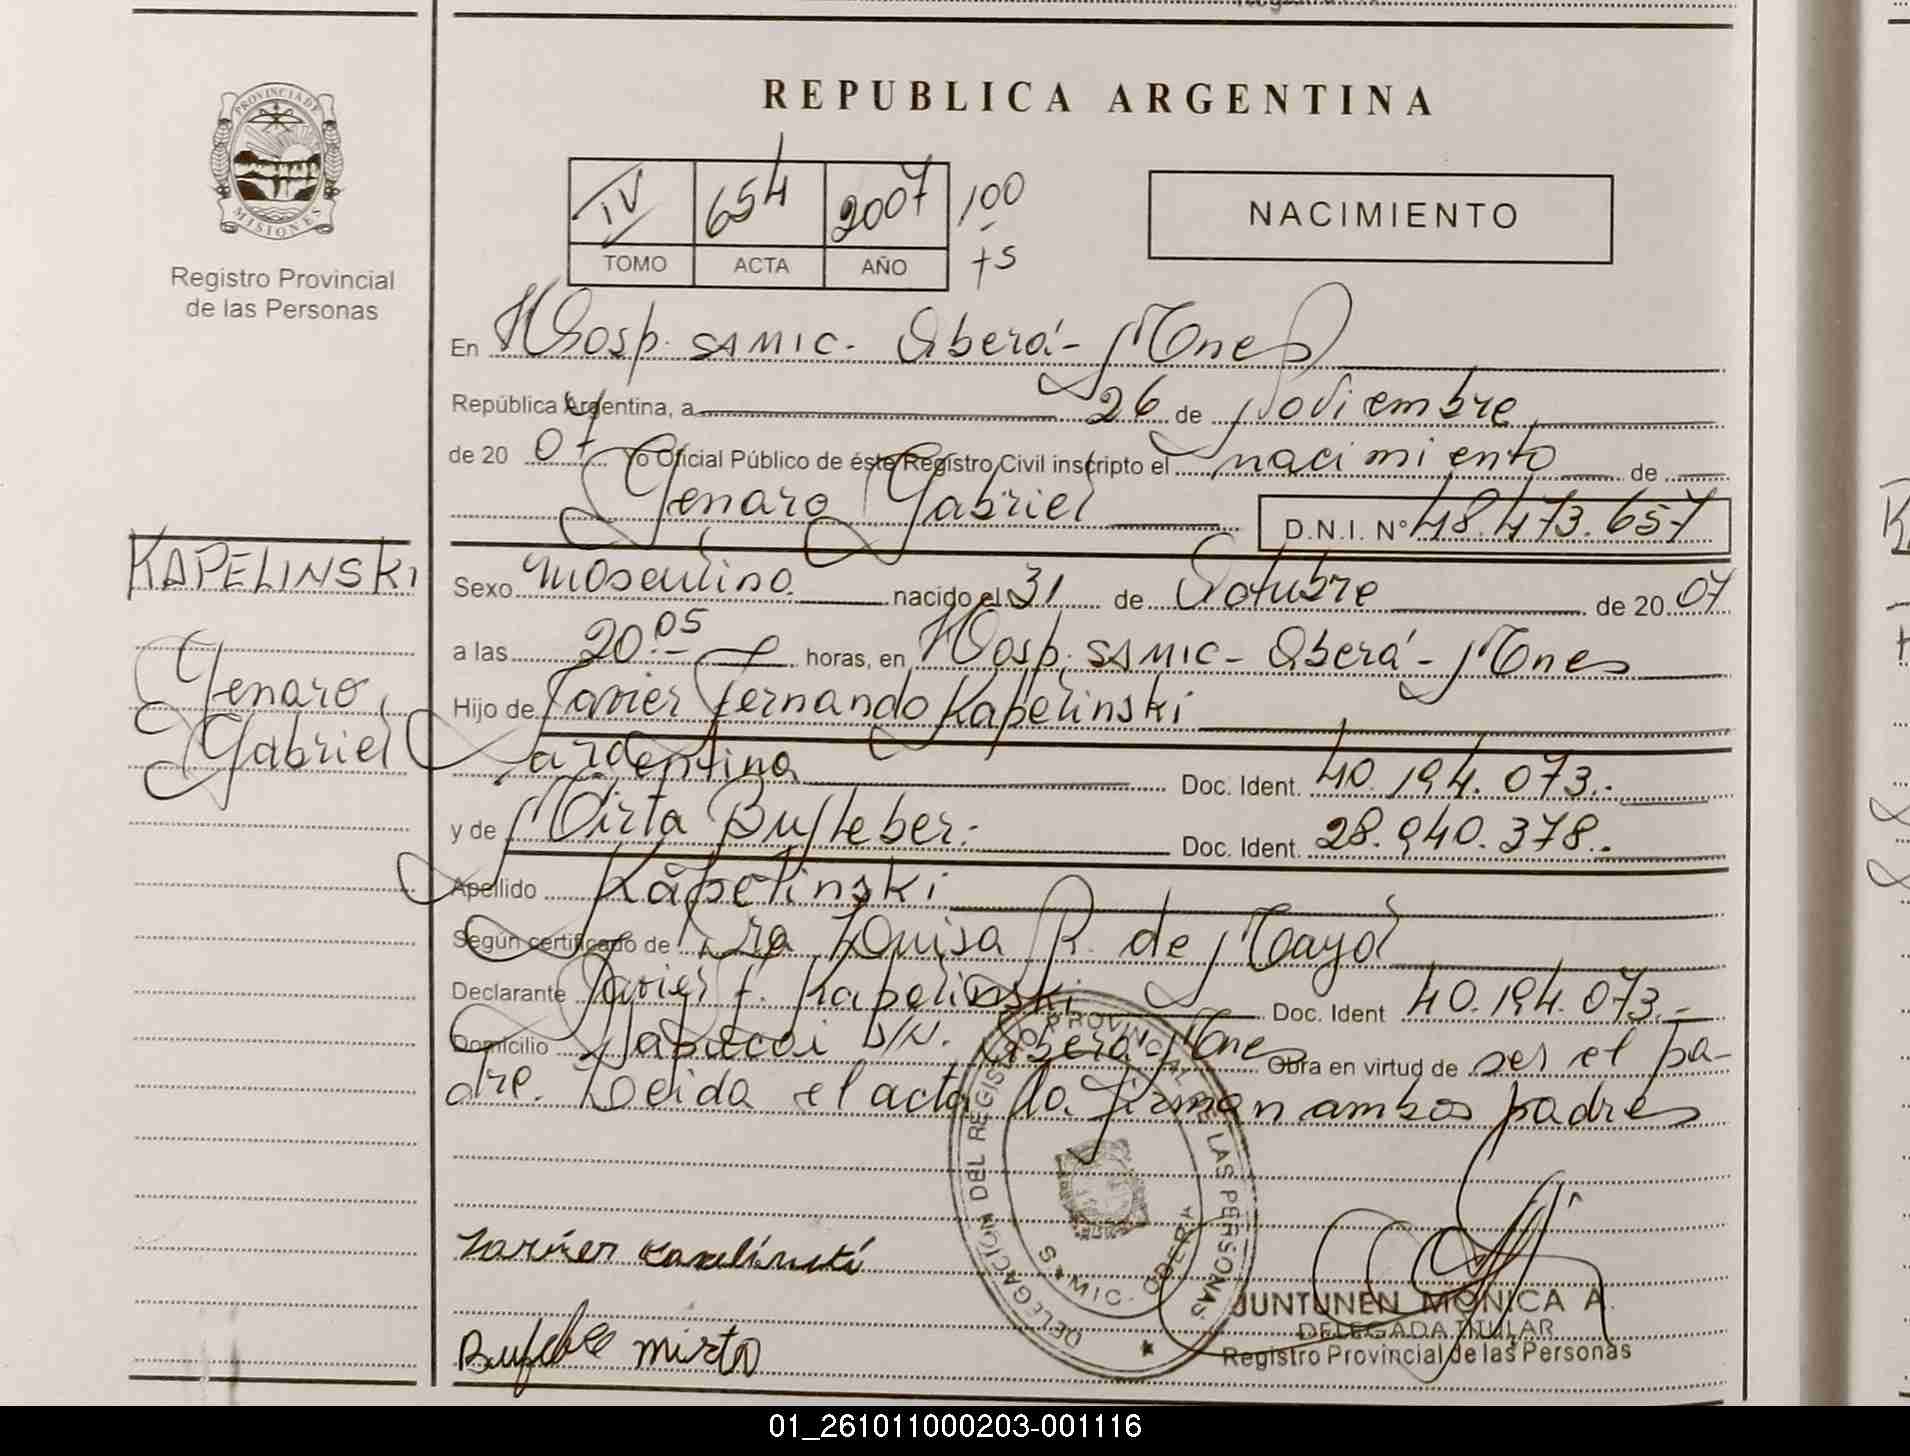 REPUBLICA ARGENTINA
PROVINCIA DE
MISIONES
Registro Provincial
de las Personas
IV 654 2007 100
TOMO ACTA AÑO
NACIMIENTO
En Hosp. SAMIC. Oberá - Mnes
República Argentina, a 26 de Noviembre
de 20 07 Yo Oficial Público de éste Registro Civil inscripto el nacimiento de
Genaro Gabriel D.N.I. Nº 48.473.657
KAPELINSKI
Genaro
Gabriel
Sexo Masculino nacido el 31 de Octubre de 20 07
a las 20.05 horas, en Hosp. SAMIC - Oberá - Mnes
Hijo de Javier Fernando Kapelinski
argentina Doc. Ident. 40.194.073.-
y de Mirta Bufleber. Doc. Ident. 28.940.378.-
Apellido Kapelinski
Según certificado de Dra Luisa R. de Mayol
Declarante Javier F. Kapelinski Doc. Ident 40.194.073.-
Domicilio S/N. Oberá Mnes Obra en virtud de ser el pa-
dre. Leida el acta la firman ambos padres
DELEGACION DEL REGISTRO PROVINCIAL DE LAS PERSONAS
SAMIC - OBERA
Javier Kapelinski
Mirta
JUNTUNEN MONICA A.
DELEGADA TITULAR
Registro Provincial de las Personas
01_261011000203-001116